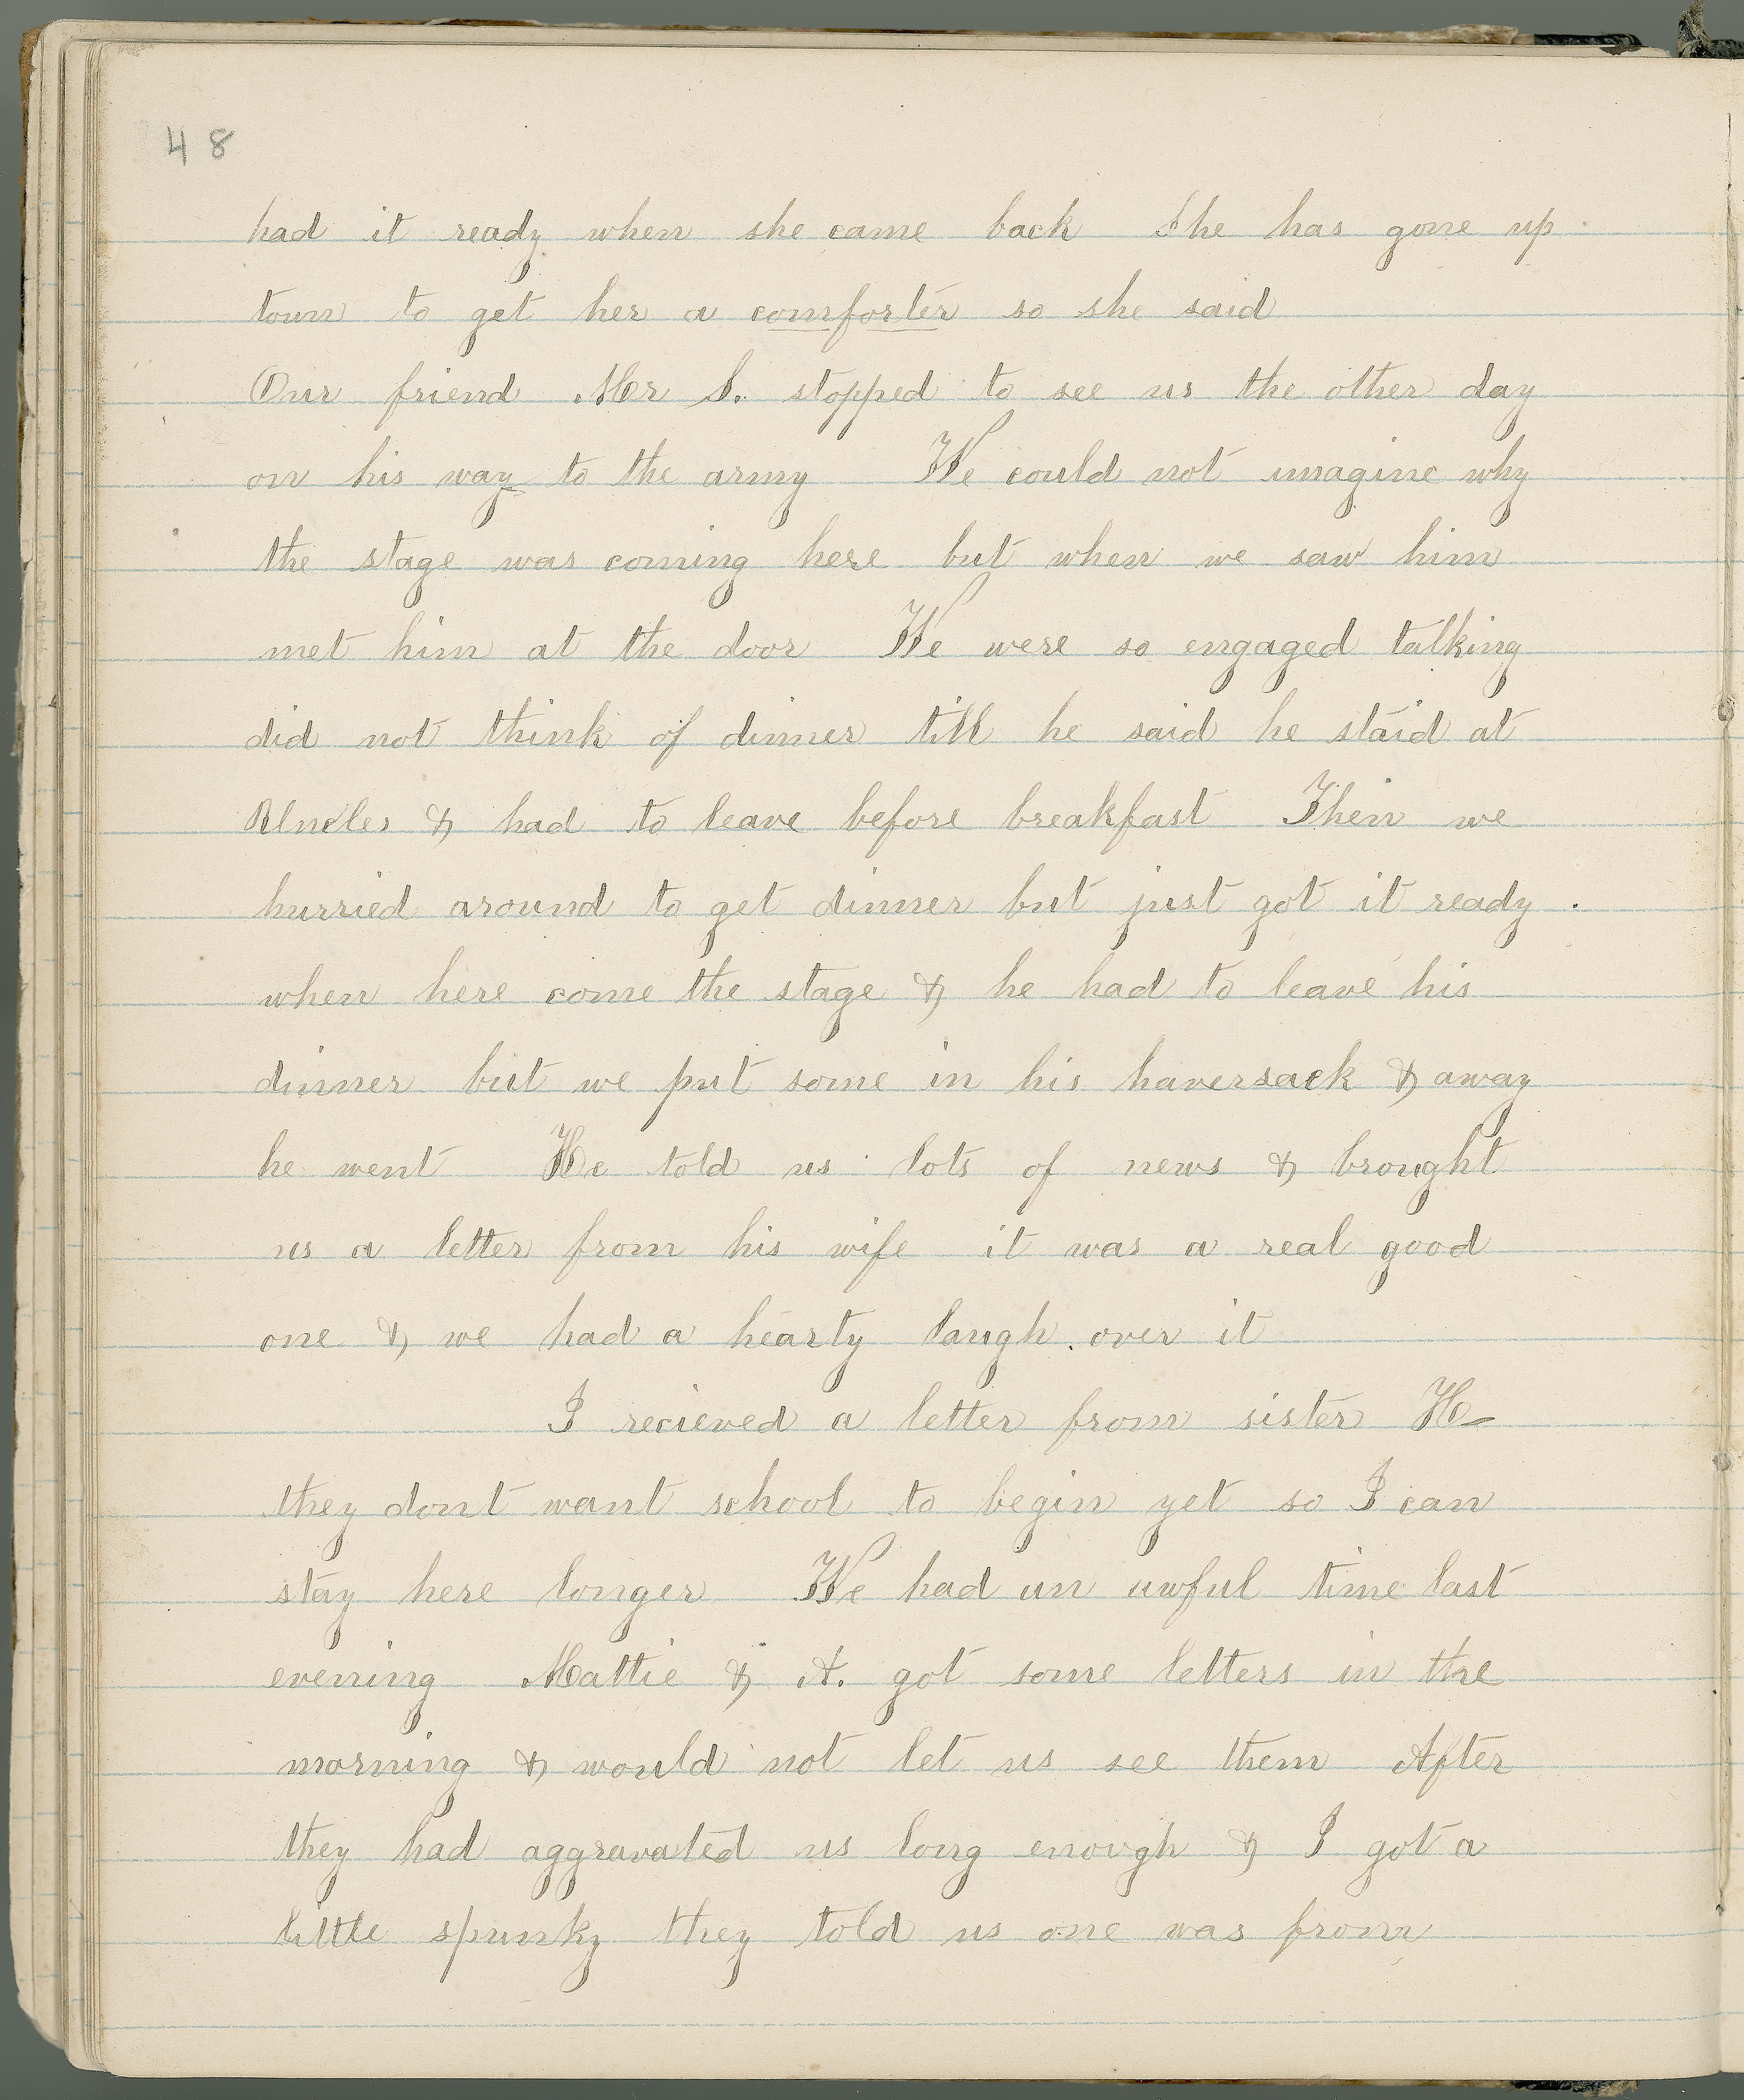 48
had it ready when she came back She has gone up
town to get her a comforter so she said
Our friend Mr S. stopped to see us the other day
on his way to the army We could not imagine why
the stage was coming here but when we saw him
met him at the door We were so engaged talking
did not think of dinner till he said he staid at
Uncles & had to leave before breakfast Then we
hurried around to get dinner but just got it ready .
when here come the stage & he had to leave his
dinner but we put some in his haversack & away
he went He told us lots of news & brought
us a letter from his wife it was a real good
one & we had a hearty laugh over it
I recieved a letter from sister H-
they dont want school to begin yet so I can
stay here longer We had an awful time last
evening Mattie & A. got some letters in the
morning & would not let us see them After
they had aggravated us long enough & I got a
little spunky they told us one was from